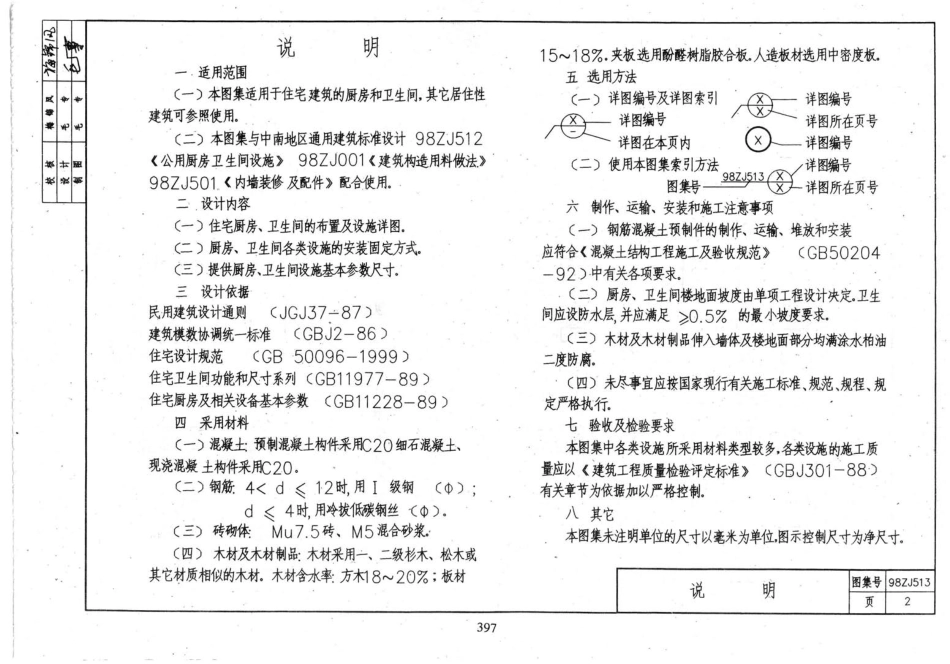 说 明
一 适用范围
（一）本图集适用于住宅建筑的厨房和卫生间。其它居住性
建筑可参照使用。
（二）本图集与中南地区通用建筑标准设计 98ZJ512
《公用厨房卫生间设施》 98ZJ001《建筑构造用料做法》
98ZJ501《内墙装修及配件》配合使用。
二 设计内容
（一）住宅厨房、卫生间的布置及设施详图。
（二）厨房、卫生间各类设施的安装固定方式。
（三）提供厨房、卫生间设施基本参数尺寸。
三 设计依据
民用建筑设计通则 （JGJ37-87）
建筑模数协调统一标准 （GBJ2-86）
住宅设计规范 （GB 50096-1999）
住宅卫生间功能和尺寸系列（GB11977-89）
住宅厨房及相关设备基本参数 （GB11228-89）
四 采用材料
（一）混凝土：预制混凝土构件采用C20细石混凝土、
现浇混凝土构件采用C20。
（二）钢筋：4< d ≤ 12时，用Ⅰ级钢 （Φ）；
d ≤ 4时，用冷拔低碳钢丝（Φ）。
（三）砖砌体： Mu7.5砖、M5混合砂浆。
（四）木材及木材制品：木材采用一、二级杉木、松木或
其它材质相似的木材。木材含水率：方木18~20%；板材
15~18%。夹板选用酚醛树脂胶合板。人造板材选用中密度板。
五 选用方法
（一）详图编号及详图索引
X X 详图编号
详图所在页号
X - 详图编号
详图在本页内
X 详图编号
（二）使用本图集索引方法
图集号 98ZJ513 X X 详图编号
详图所在页号
六 制作、运输、安装和施工注意事项
（一）钢筋混凝土预制件的制作、运输、堆放和安装
应符合《混凝土结构工程施工及验收规范》 （GB50204
-92）中有关各项要求。
（二）厨房、卫生间楼地面坡度由单项工程设计决定。卫生
间应设防水层，并应满足 ≥0.5% 的最小坡度要求。
（三）木材及木材制品伸入墙体及楼地面部分均满涂水柏油
二度防腐。
（四）未尽事宜应按国家现行有关施工标准、规范、规程、规
定严格执行。
七 验收及检验要求
本图集中各类设施所采用材料类型较多。各类设施的施工质
量应以《建筑工程质量检验评定标准》（GBJ301-88）
有关章节为依据加以严格控制。
八 其它
本图集未注明单位的尺寸以毫米为单位。图示控制尺寸为净尺寸。
说 明
图集号 98ZJ513
页 2
校核
设计 毛专
制图 毛专
397